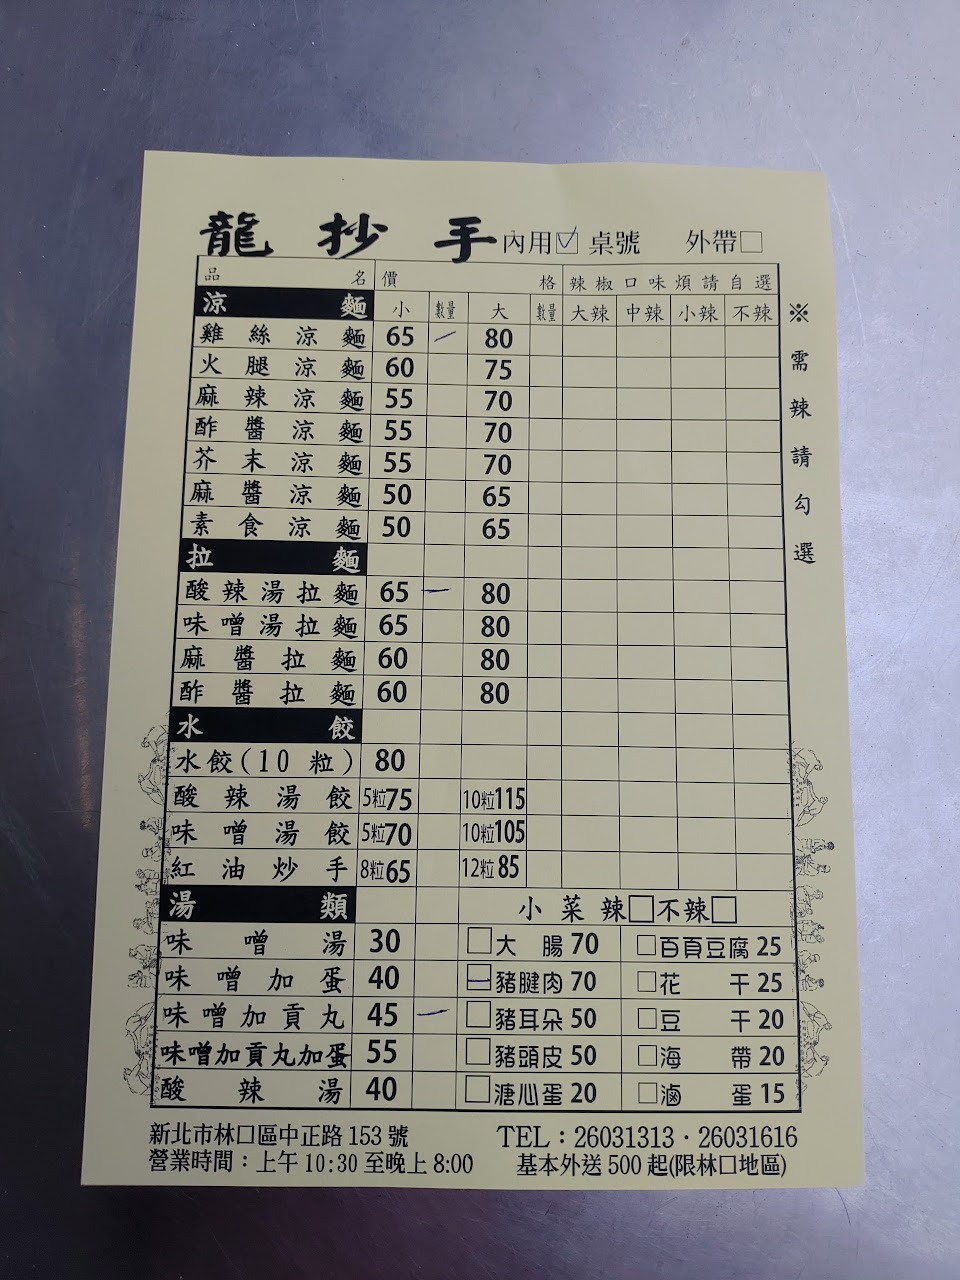 龍抄手 內用☑ 桌號 外帶□
品名 價格 辣椒口味煩請自選
涼麵 小 數量 大 數量 大辣 中辣 小辣 不辣
雞絲涼麵 65 一 80
火腿涼麵 60 75
麻辣涼麵 55 70
酢醬涼麵 55 70
芥末涼麵 55 70
麻醬涼麵 50 65
素食涼麵 50 65
拉麵
酸辣湯拉麵 65 一 80
味噌湯拉麵 65 80
麻醬拉麵 60 80
酢醬拉麵 60 80
水餃
水餃(10粒) 80
酸辣湯餃 5粒75 10粒115
味噌湯餃 5粒70 10粒105
紅油炒手 8粒65 12粒85
湯類 小菜 辣□不辣□
味噌湯 30 □大腸 70 □百頁豆腐 25
味噌加蛋 40 一 豬腱肉 70 □花干 25
味噌加貢丸 45 一 □豬耳朵 50 □豆干 20
味噌加貢丸加蛋 55 □豬頭皮 50 □海帶 20
酸辣湯 40 □溏心蛋 20 □滷蛋 15
※需辣請勾選
新北市林口區中正路 153 號 TEL：26031313 · 26031616
營業時間：上午 10:30 至晚上 8:00 基本外送 500 起(限林口地區)